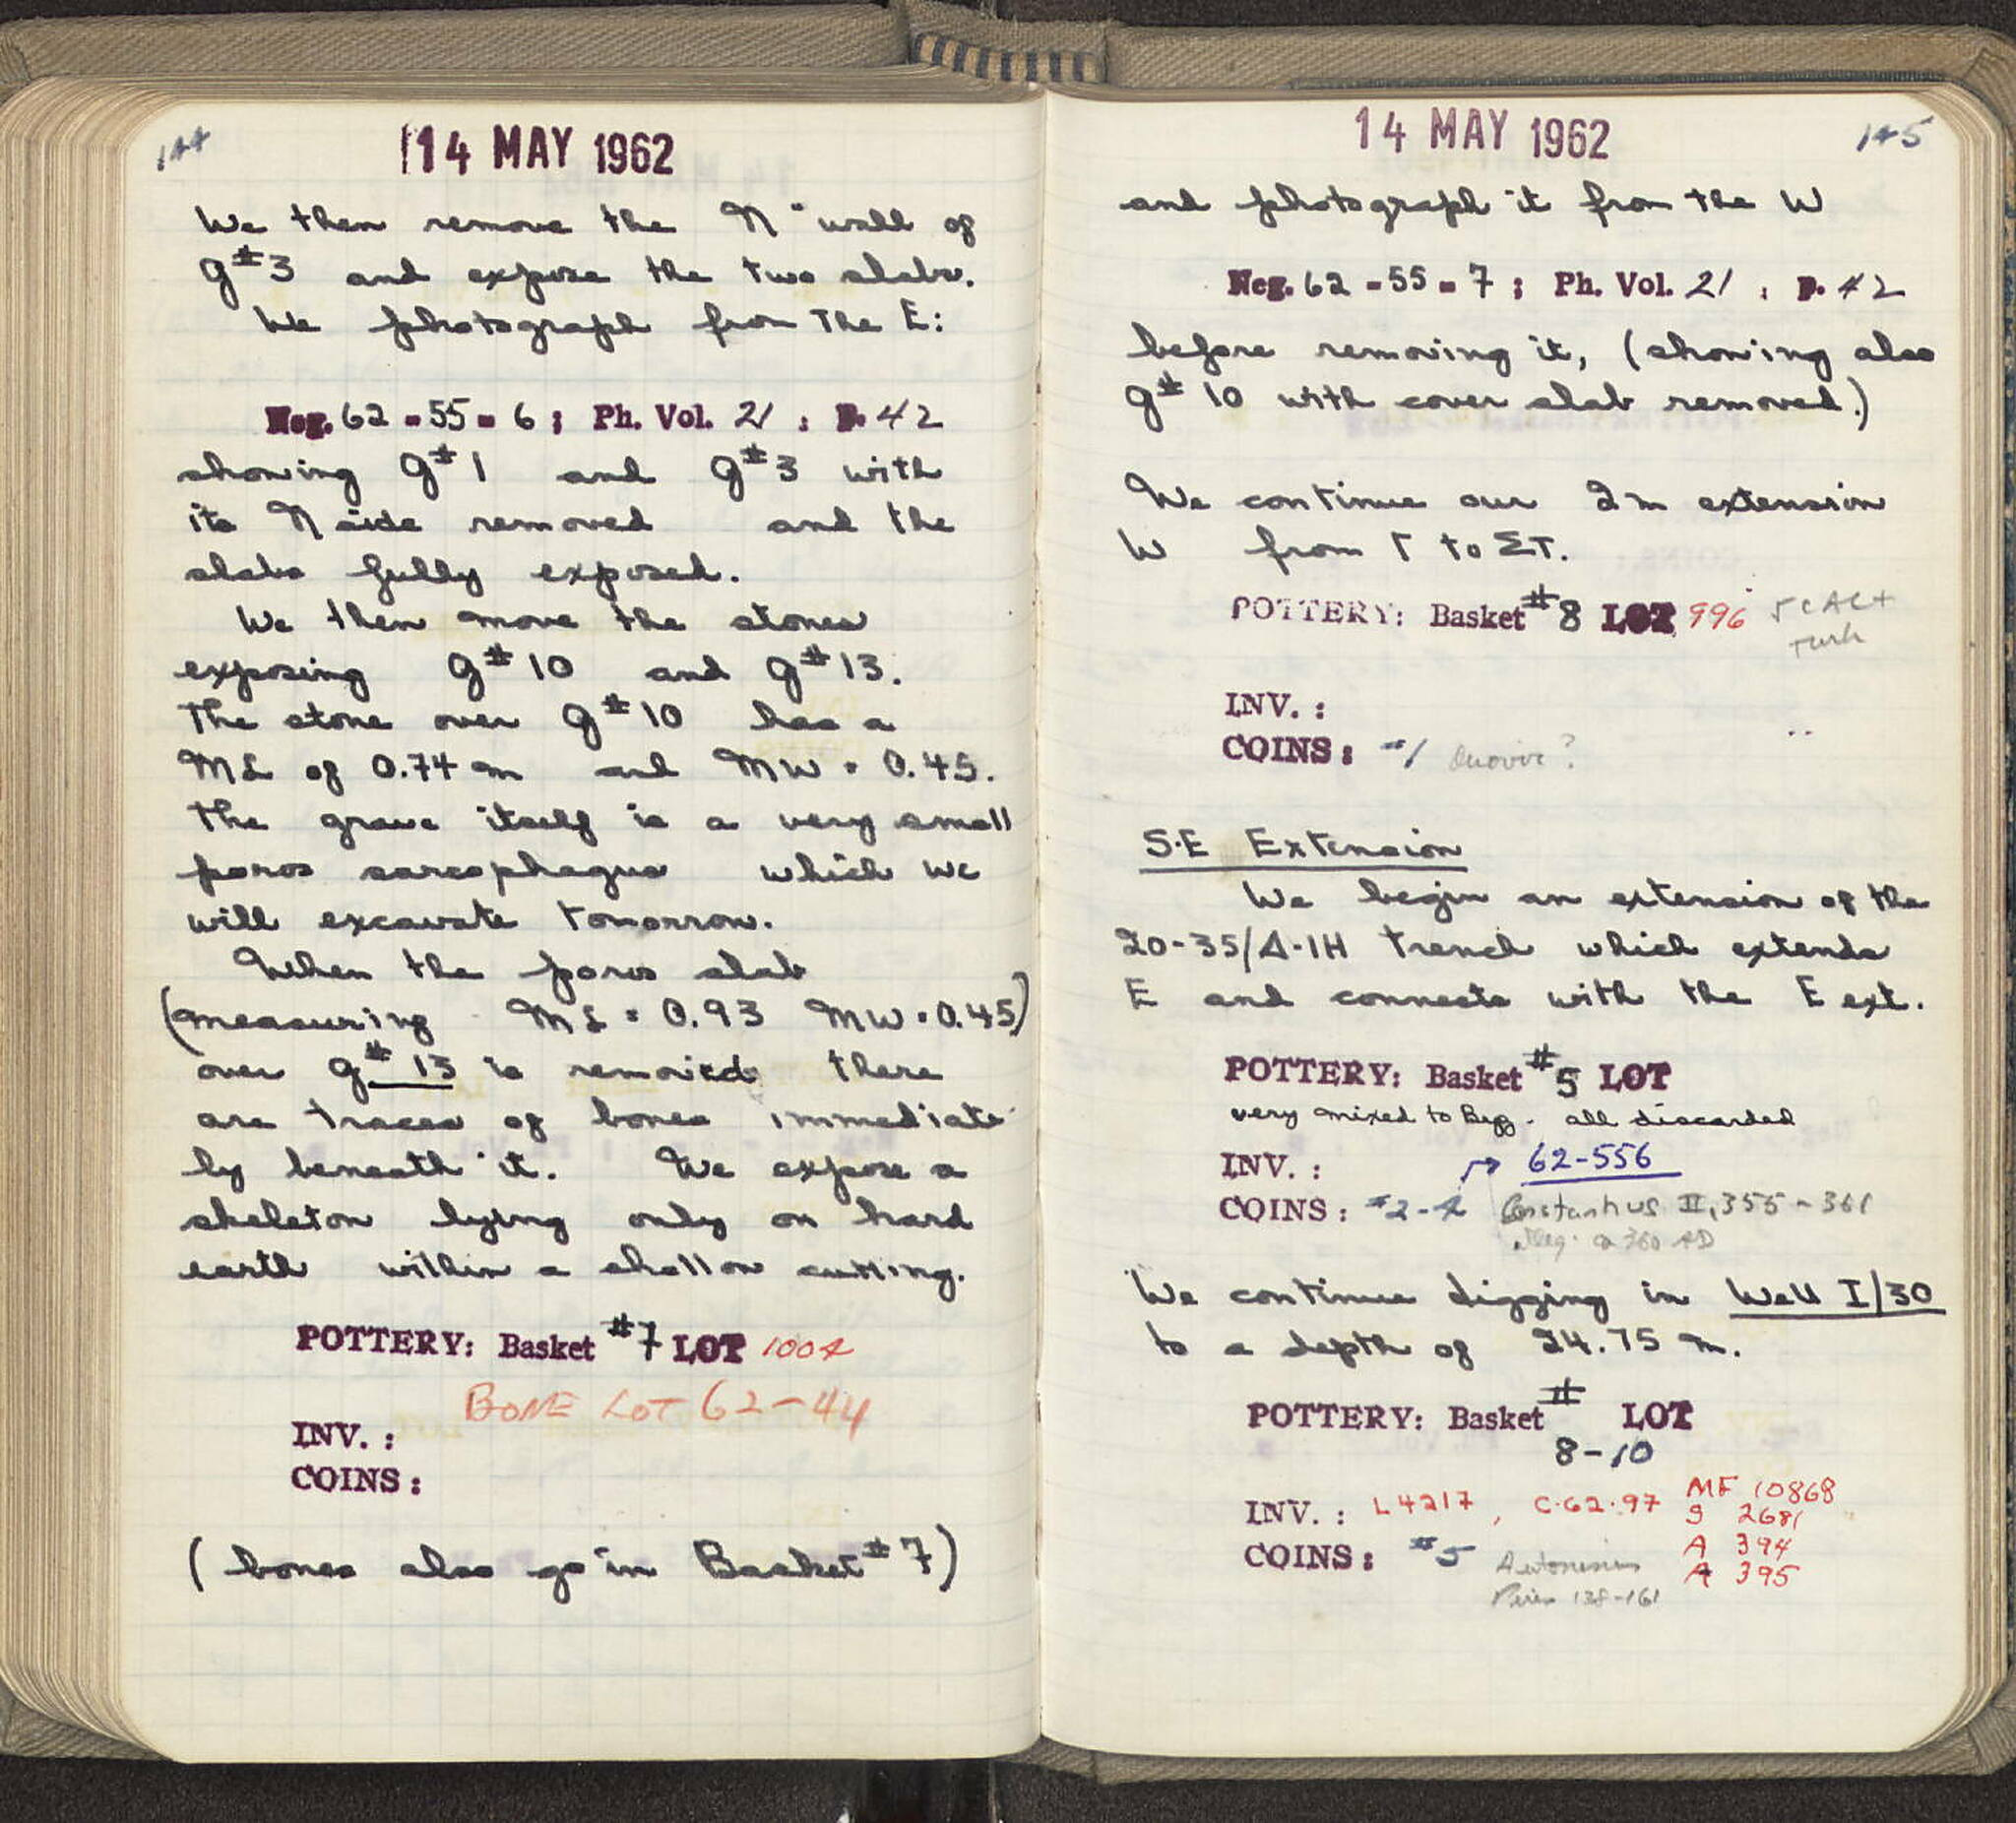 144
14 MAY 1962
We then remove the N wall of
g#3 and expose the two slabs.
We photograph from The E:
Neg. 62-55-6; Ph. Vol. 21, p. 42
showing g#1 and g#3 with
its N side removed and the
slabs fully exposed.
We then move the stones
exposing g#10 and g#13.
The stone over g#10 has a
ML of 0.74 m and MW = 0.45.
The grave itself is a very small
poros sarcophagus which we
will excavate tomorrow.
When the poros slab
(measuring ML = 0.93 MW = 0.45)
over g#13 is removed there
are traces of bones immediate-
ly beneath it. We expose a
skeleton lying only on hard
earth within a shallow cutting.
POTTERY: Basket #7 LOT 1004
BONE LOT 62-44
INV. :
COINS:
(bones also go in Basket #7)
14 MAY 1962
145
and photograph it from the W
Neg. 62-55-7; Ph. Vol. 21, p. 42
before removing it, (showing also
g#10 with cover slab removed.)
We continue our 2m extension
W from Γ to ΣΤ.
POTTERY: Basket #8 LOT 996
Turk
INV. :
COINS: #1
S.E Extension
We begin an extension of the
20-35/Δ-ΙΗ trench which extends
E and connects with the E ext.
POTTERY: Basket #5 LOT
very mixed to Byz. all discarded
INV. : → 62-556
COINS: #2-4 Constantius II, 355-361
illeg. ca 360 AD
We continue digging in Well I/30
to a depth of 24.75 m.
POTTERY: Basket # LOT
8-10
INV. : L4217, C.62.97 MF 10868
S 2681
A 394
A 395
COINS: #5 Antoninus
Pius 138-161